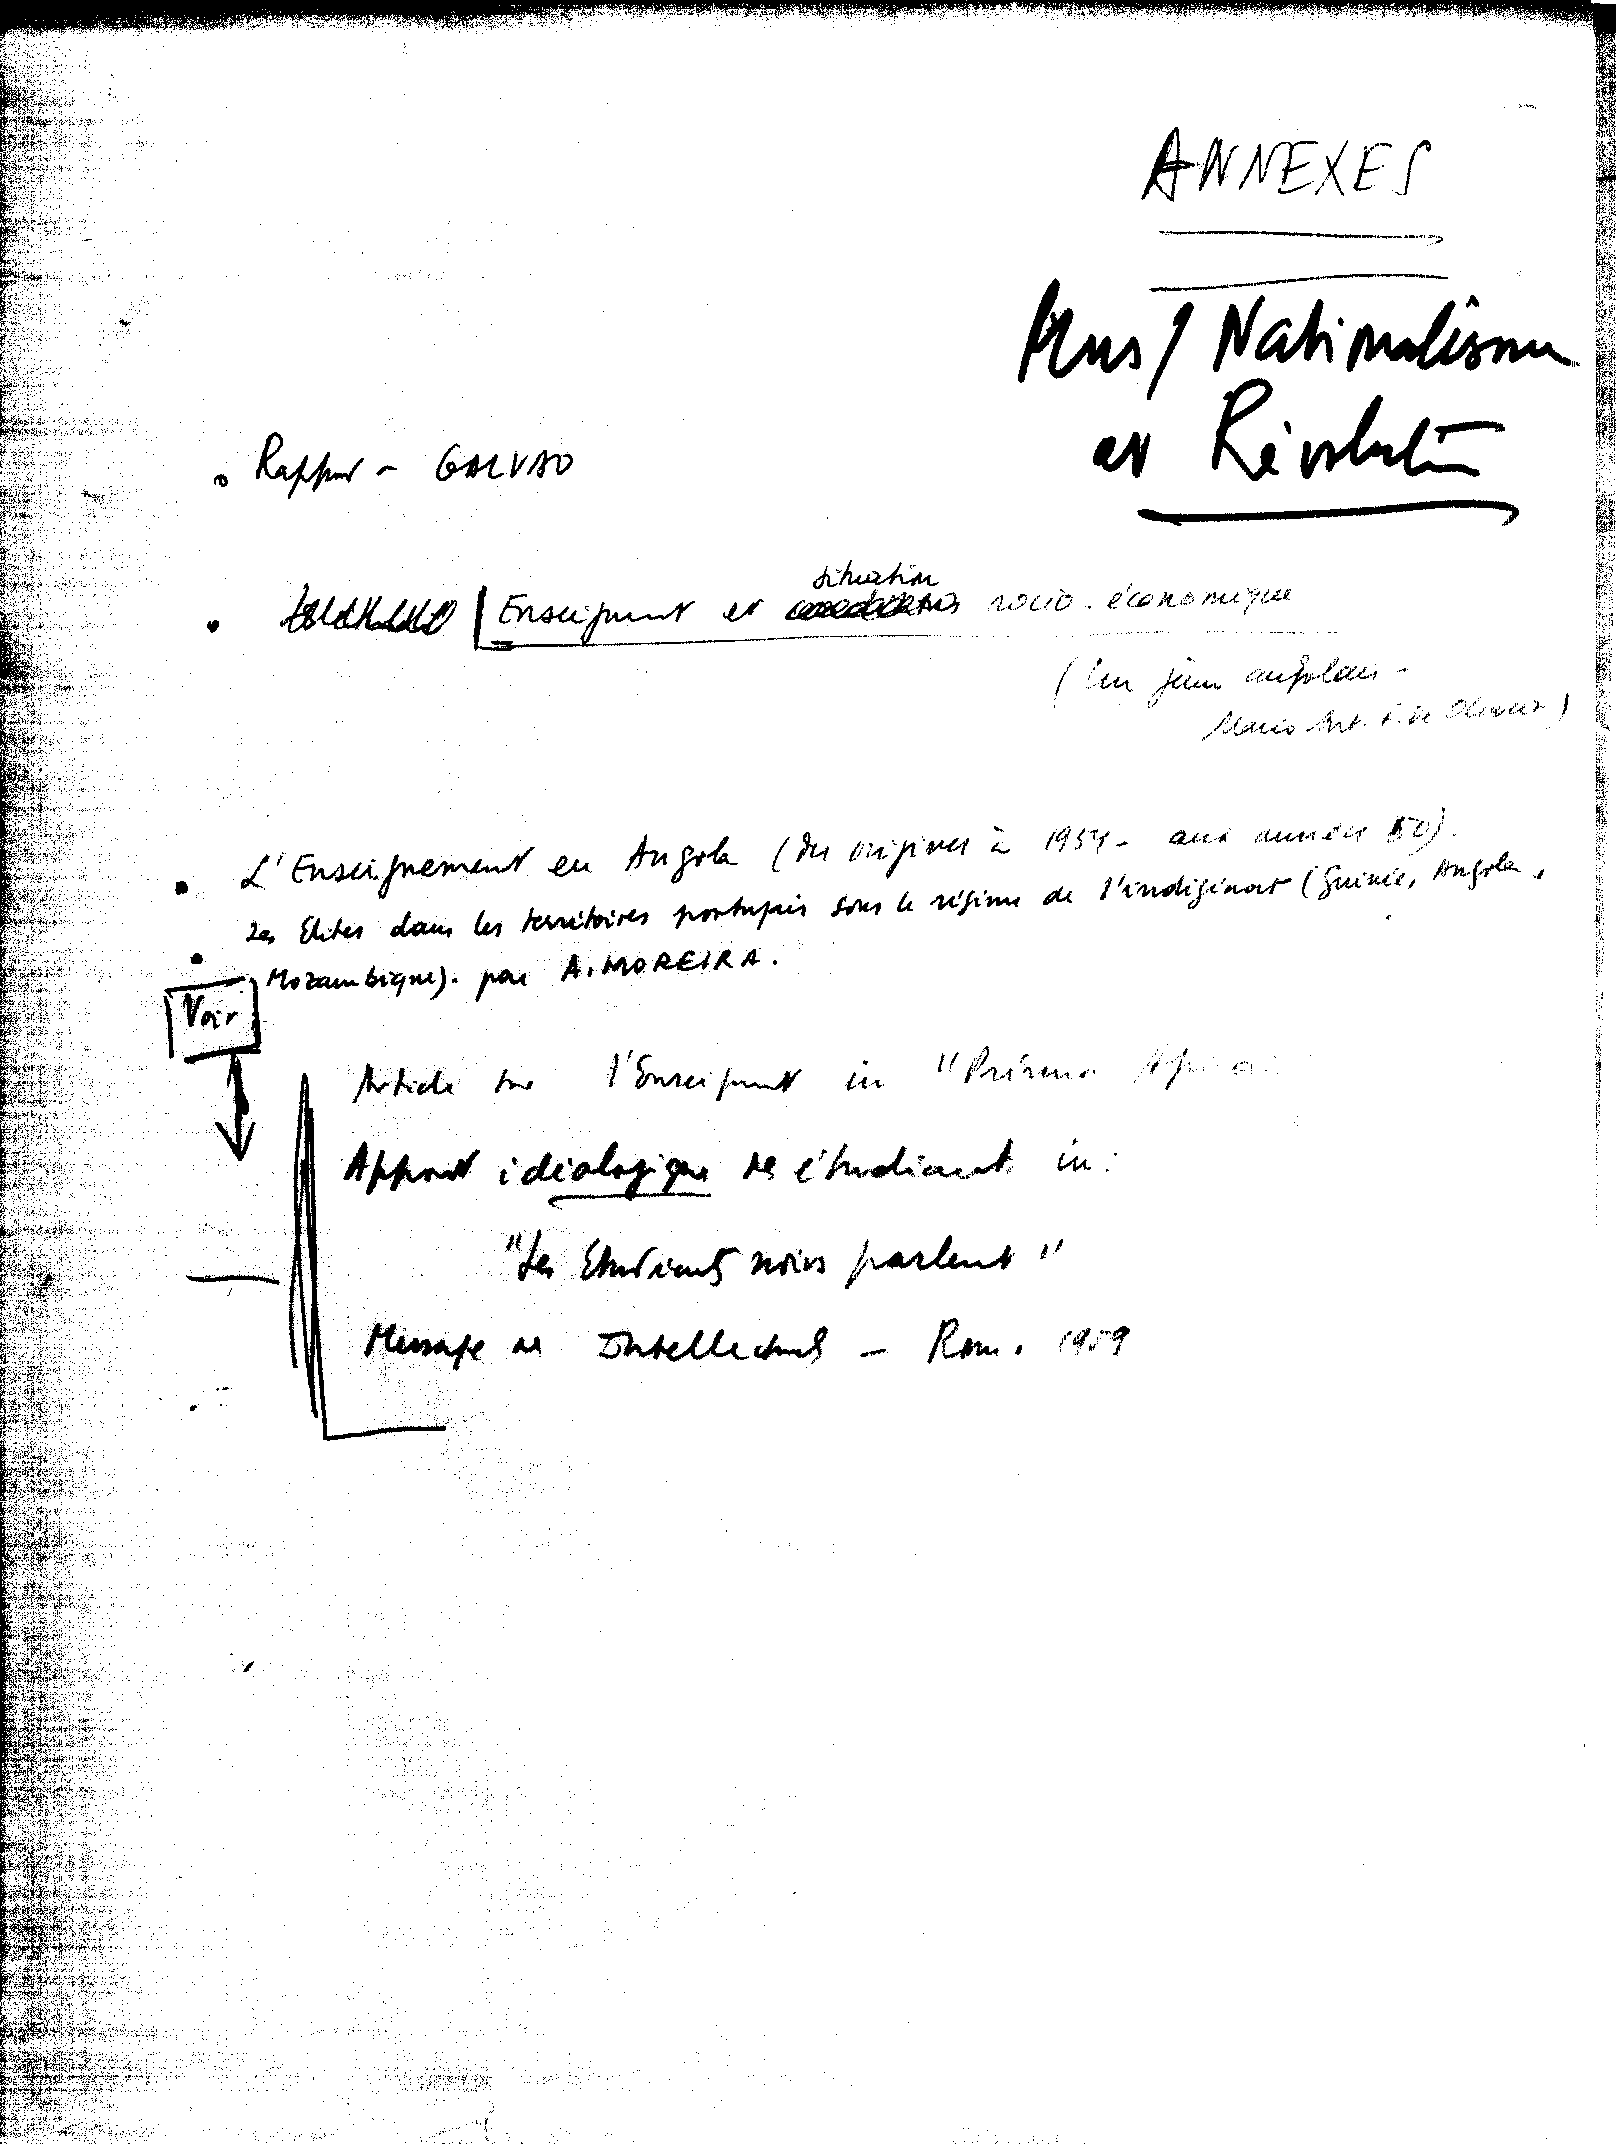 ANNEXES
Nationalisme
et Révolution
Rapport - GALVAO
situation
Enseignement et socio-économique
(Un jeune angolais -
de Oliveira)
L'Enseignement en Angola (des origines à 1954 - aux années 50).
Les Elites dans les territoires portugais sous le régime de l'indigénat (Guinée, Angola,
Mozambique). par A. MOREIRA.
Voir
Article sur l'Enseignement in "Présence
Apport idéologique des étudiants in:
"Les Etudiants noirs parlent"
Message des Intellectuels - Rome. 1959